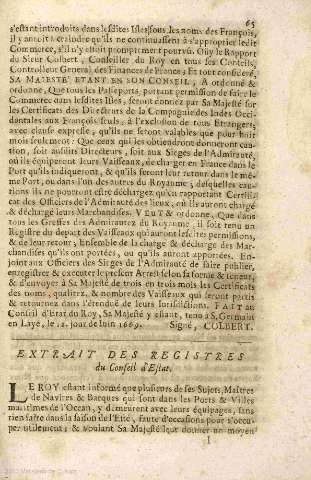 65
s'estant introduits dans lesdites Isles sous les noms des François,
il y auroit à craindre qu'ils ne continuassent à s'approprier ledit
Commerce, s'il n'y estoit promptement pourvû. Oüy le Rapport
du Sieur Colbert, Conseiller du Roy en tous ses Conseils,
Controlleur General des Finances de France; Et tout consideré,
SA MAJESTE' ETANT EN SON CONSEIL, A ordonné &
ordonne, Que tous les Passeports, portant permission de faire le
Commerce dans lesdites Isles, seront donnez par Sa Majesté sur
les Certificats des Directeurs de la Compagnie des Indes Occi-
dentales aux François seuls, à l'exclusion de tous Etrangers,
avec clause expresse, qu'ils ne seront valables que pour huit
mois seulement: Que ceux qui les obtiendront donneront cau-
tion, soit ausdits Directeurs, soit aux Sieges de l'Admirauté,
où ils équiperont leurs Vaisseaux, de charger en France dans le
Port qu'ils indiqueront, & qu'ils feront leur retour dans le mê-
me Port, ou dans l'un des autres du Royaume, desquelles cau-
tions ils ne pourront estre déchargez qu'en rapportant Certifi-
cat des Officiers de l'Admirauté des lieux, où ils auront chargé
& déchargé leurs Marchandises. VEUT & ordonne, Que dans
tous les Greffes des Admirautez du Royaume, il soit tenu un
Registre du depart des Vaisseaux qui auront lesdites permissions,
& de leur retour; Ensemble de la charge & décharge des Mar-
chandises qu'ils ont portées, ou qu'ils auront apportées. En-
joint aux Officiers des Sieges de l'Admirauté de faire publier,
enregistrer & executer le present Arrest selon sa forme & teneur,
& d'envoyer à Sa Majesté de trois en trois mois les Certificats
des noms, qualitez, & nombre des Vaisseaux qui seront partis
& retournez dans l'étenduë de leurs Jurisdictions. FAIT au
Conseil d'Etat du Roy, Sa Majesté y estant, tenu à S. Germain
en Laye, le 12. jour de Juin 1669. Signé, COLBERT.
EXTRAIT DES REGISTRES
du Conseil d'Estat.
LE ROY estant informé que plusieurs de ses Sujets, Maîtres
de Navires & Barques qui sont dans les Ports & Villes
maritimes de l'Ocean, y demeurent avec leurs équipages, sans
rien faire dans la saison de l'Eté, faute d'occasions pour s'occu-
per utilement; & voulant Sa Majesté leur donner un moyen
I